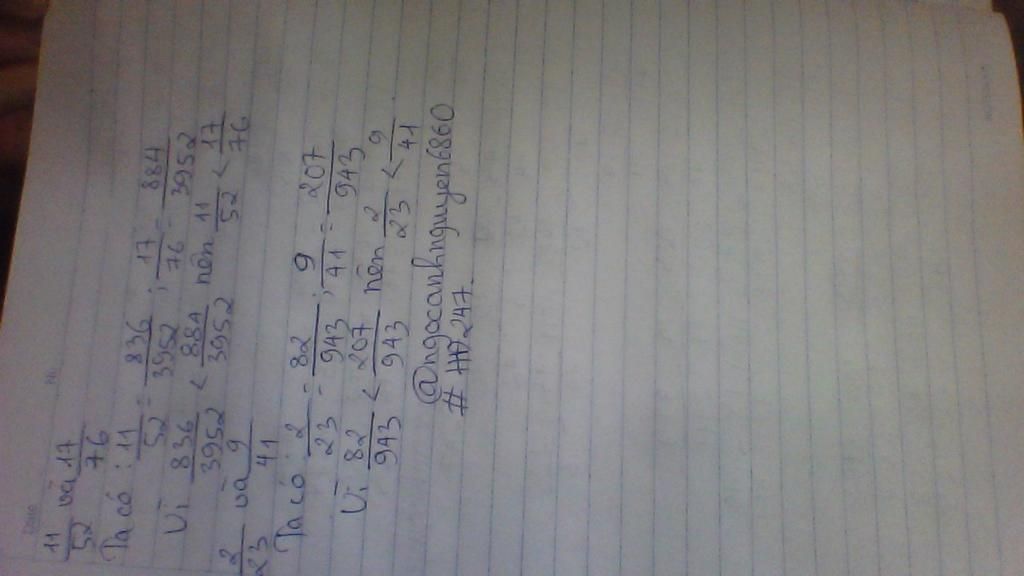 11/52 và 17/76
Ta có: 11/52 = 836/3952 ; 17/76 = 884/3952
Vì 836/3952 < 884/3952 nên 11/52 < 17/76
2/23 và 9/41
Ta có: 2/23 = 82/943 ; 9/41 = 207/943
Vì 82/943 < 207/943 nên 2/23 < 9/41
@ngocanhnguyen6860
# HD247